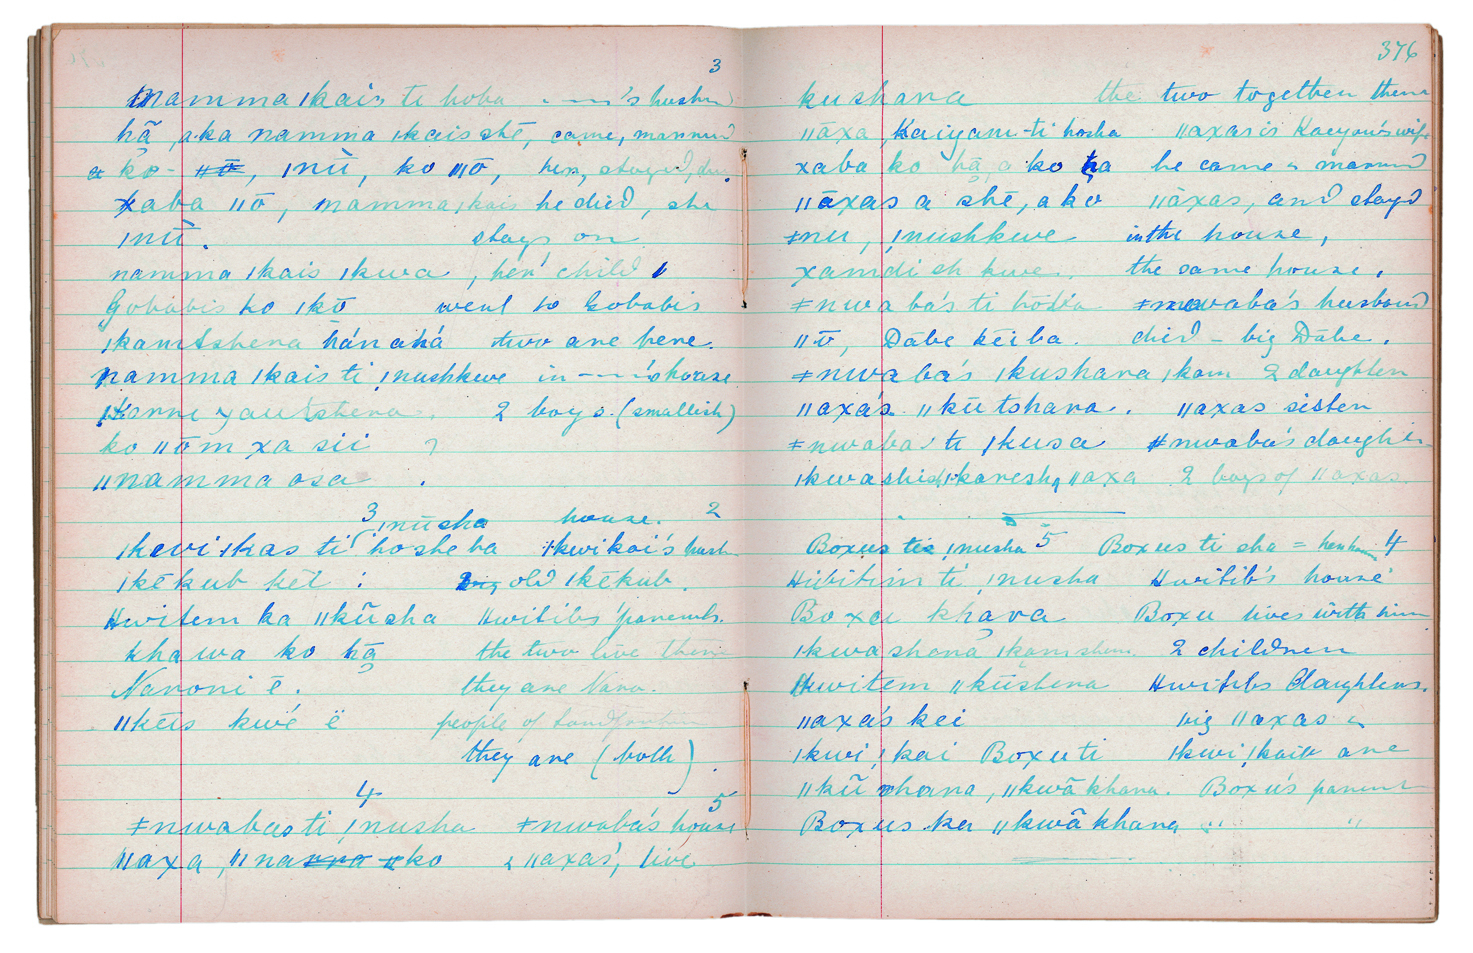 3
Namma ǀkais ti hoba - — — 's husbn
hã, aka namma ǀkais shē, came, married
a ko - ǀnù, ko ǁō, her, stayed,
xaba ǁō, namma ǀkais he died, she
ǀnù. stays on
namma ǀkais ǀkwa, her child
Gobabis ho ǀkō went to Gobabis
ǀkamtshena hán ahá two are here.
namma ǀkais ti ǀnushkwe in - — — 's house
2 boys. (smallish)
ko ǁōm xa sii ?
ǁnamma osa .
3 ǀnūsha house. 2
ǀkwi ǀkas ti hoshe ba ǀkwi kai's husb
ǀkēkub kēi : old ǀkēkub.
Hwitem ka ǁkūsha Hwitibs' parents.
khawa ko hã the two live there
Naroni ē. they are Naro.
ǁkēis kwé ë people of Sandfontein
they are (both).
4 5
ǂnwabas ti ǀnusha ǂnwaba's house
ǁaxa, ko & ǁaxas', live
376
kushana the two together there
ǁāxa, Kaiyam-ti hosha ǁaxas is Kaeyou's wife
xaba ko hã, a ko ha he came & married
ǁāxas a shē, a kò ǁāxas, and stayd
ǂnu, ǀnushkwe in the house,
xamdi sh kwe. the same house.
ǂnwa ba's ti hōba ǂnwaba's husband
ǁō, Dābe kēiba. died - big Dābe.
ǂnwaba's ǀkushana ǀkam 2 daughter
ǁaxa's ǁkūtshana. ǁaxas sister
ǂnwaba' ti ǀkusa ǂnwaba's daughter
ǁaxa 2 boys of ǁaxas.
Boxus ti ǀnusha 5 Boxus ti sha = 4
Hibitim ti ǀnusha Hwitib's house
Boxu khara Boxu lives with him
ǀkwashana ǀkamshana. 2 children
Hwitem ǁkūshena Hwitibs daughters.
ǁaxa's kei big ǁaxas &
ǀkwi ǀkai Boxu ti ǀkwi ǀkais are
ǁkū shana, ǁkwākhana. Boxu's parent
Boxus ka ǁkwākhana " "